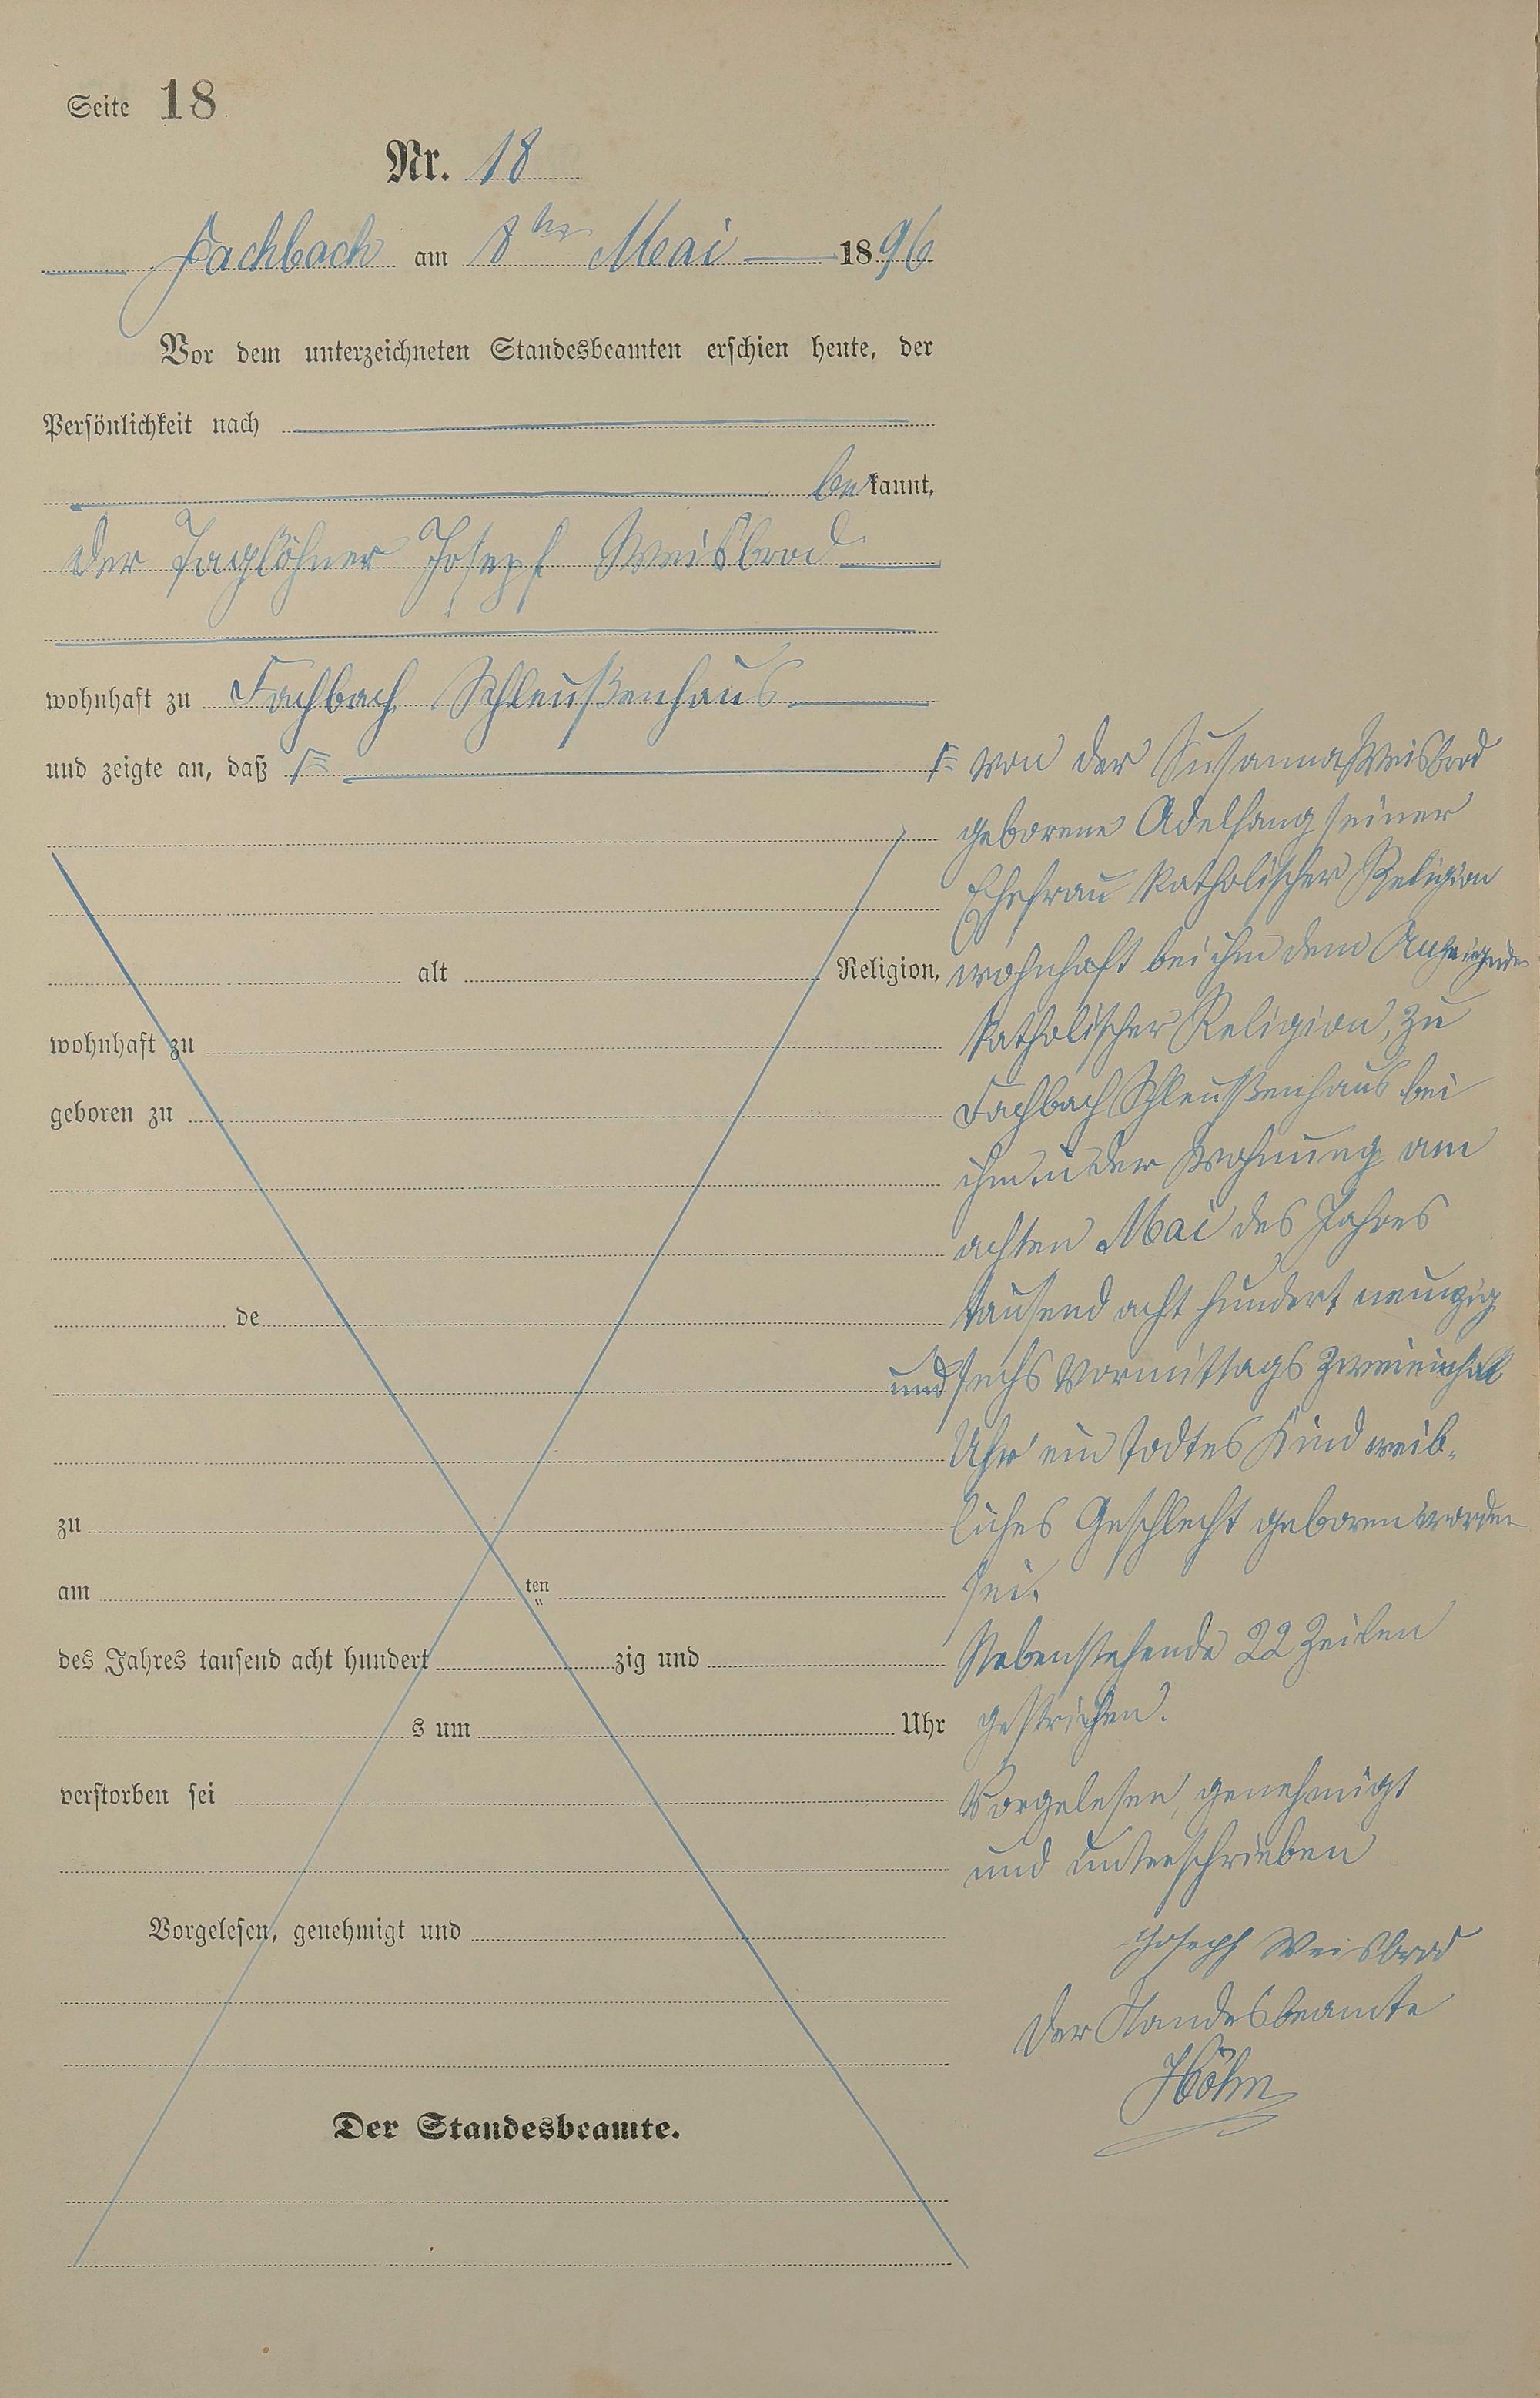 Seite 18
Nr. 18
Fachbach am 8ten Mai 1896
Vor dem unterzeichneten Standesbeamten erschien heute, der
Persönlichkeit nach
bekannt,
der Taglöhner Joseph Weisbrod
wohnhaft zu Fachbach Schleußenhaus
und zeigte an, daß
von der Susanna Weisbrod
geborene Adelfang seiner
Ehefrau katholischer Religion
alt Religion,
wohnhaft bei ihm dem Anzeigenden
wohnhaft zu
katholischer Religion, zu
geboren zu
Fachbach Schleußenhaus bei
ihm in der Wohnung am
achten Mai des Jahres
de
tausend acht hundert neunzig
und sechs Vormittags zweieinhalb
Uhr ein todtes Kind weib-
zu
liches Geschlecht geboren worden
am ten
sei.
des Jahres tausend acht hundert zig und
Nebenstehende 22 Zeilen
s um Uhr
gestrichen.
verstorben sei
Vorgelesen, genehmigt
und unterschrieben
Vorgelesen, genehmigt und
Joseph Weisbrod
Der Standesbeamte
Höhn
Der Standesbeamte.